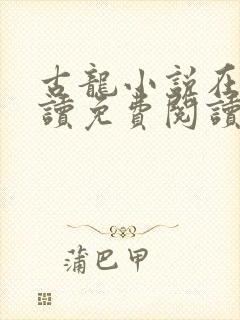 古龍小說在
讀免費閱讀
蒲巴甲